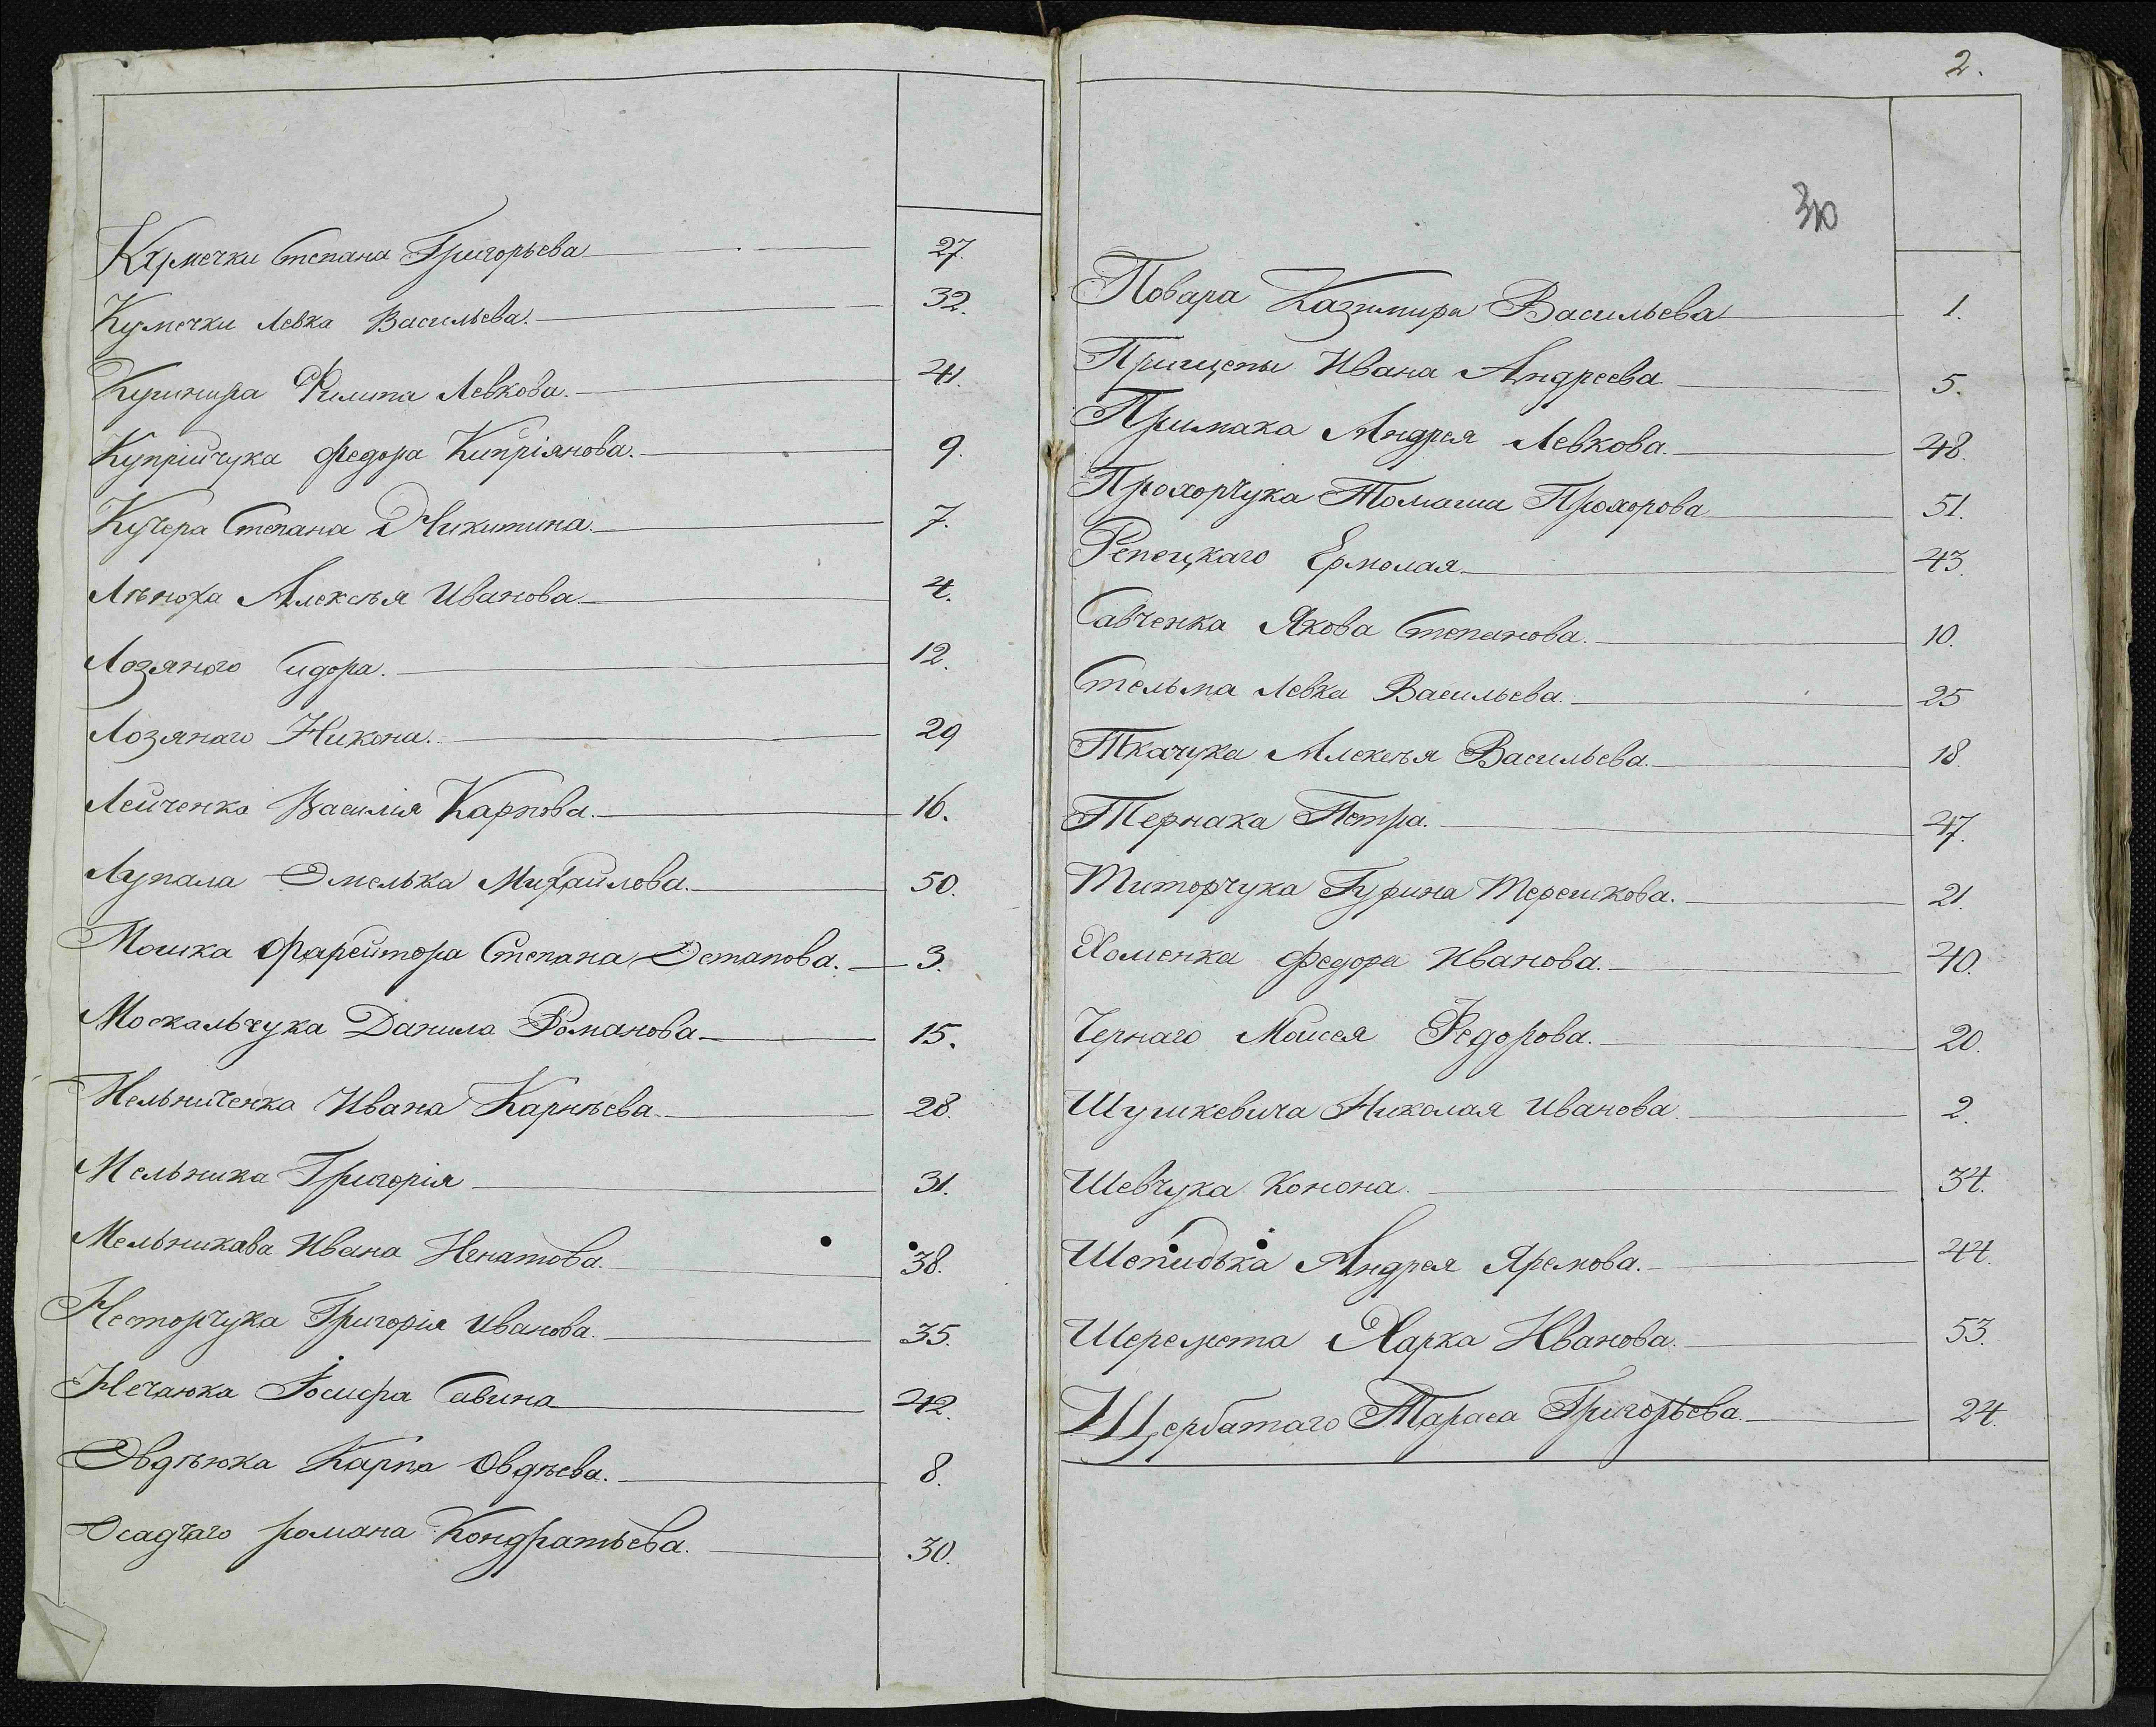 Кармечки Степана Григорьева 27.
Кумечки Левка Васильева. 32.
Кушнира Филипа Левкова. 41.
Купрійчука Федора Кипріянова. 9.
Кучера Степана Никитина. 7.
Лѣнюха Алексѣя Иванова 4.
Лозяного Сидора. 12.
Лозянаго Никона. 29
Лейченка Василія Карпова. 16.
Лупала Омелька Михайлова. 50.
Мошка Фарейтора Степана Остапова. 3.
Москальчука Данила Романова 15.
Мельниченка Ивана Карнѣева 28.
Мельника Григорія 31.
Мельникава Ивана Игнатова. 38.
Несторчука Григорія Иванова. 35.
Нечаюка Іосифа Савина 42.
Овдѣюка Карпа Овдѣева. 8.
Осадчаго романа Кондратьева. 30.
2.
30
Повара Казимира Васильева 1.
Прищепы Ивана Андреева 5.
Примака Андрея Левкова. 48.
Прохорчука Томаша Прохорова 51.
Репецкаго Ермолая 43.
Савченка Якова Степанова. 10.
Стельма Левка Васильева. 25
Ткачука Алексѣя Васильева. 18
Термака Петра. 47.
Титорчука Гурина Терешкова. 21.
Хоменка Федора Иванова. 40.
Чернаго Моисея Федорова. 20.
Шушкевича Николая Иванова. 2.
Шевчука Конона. 34.
Шепидька Андрея Яремова. 44.
Шеремета Харка Иванова. 53.
Щербатаго Тараса Григорьева. 24.